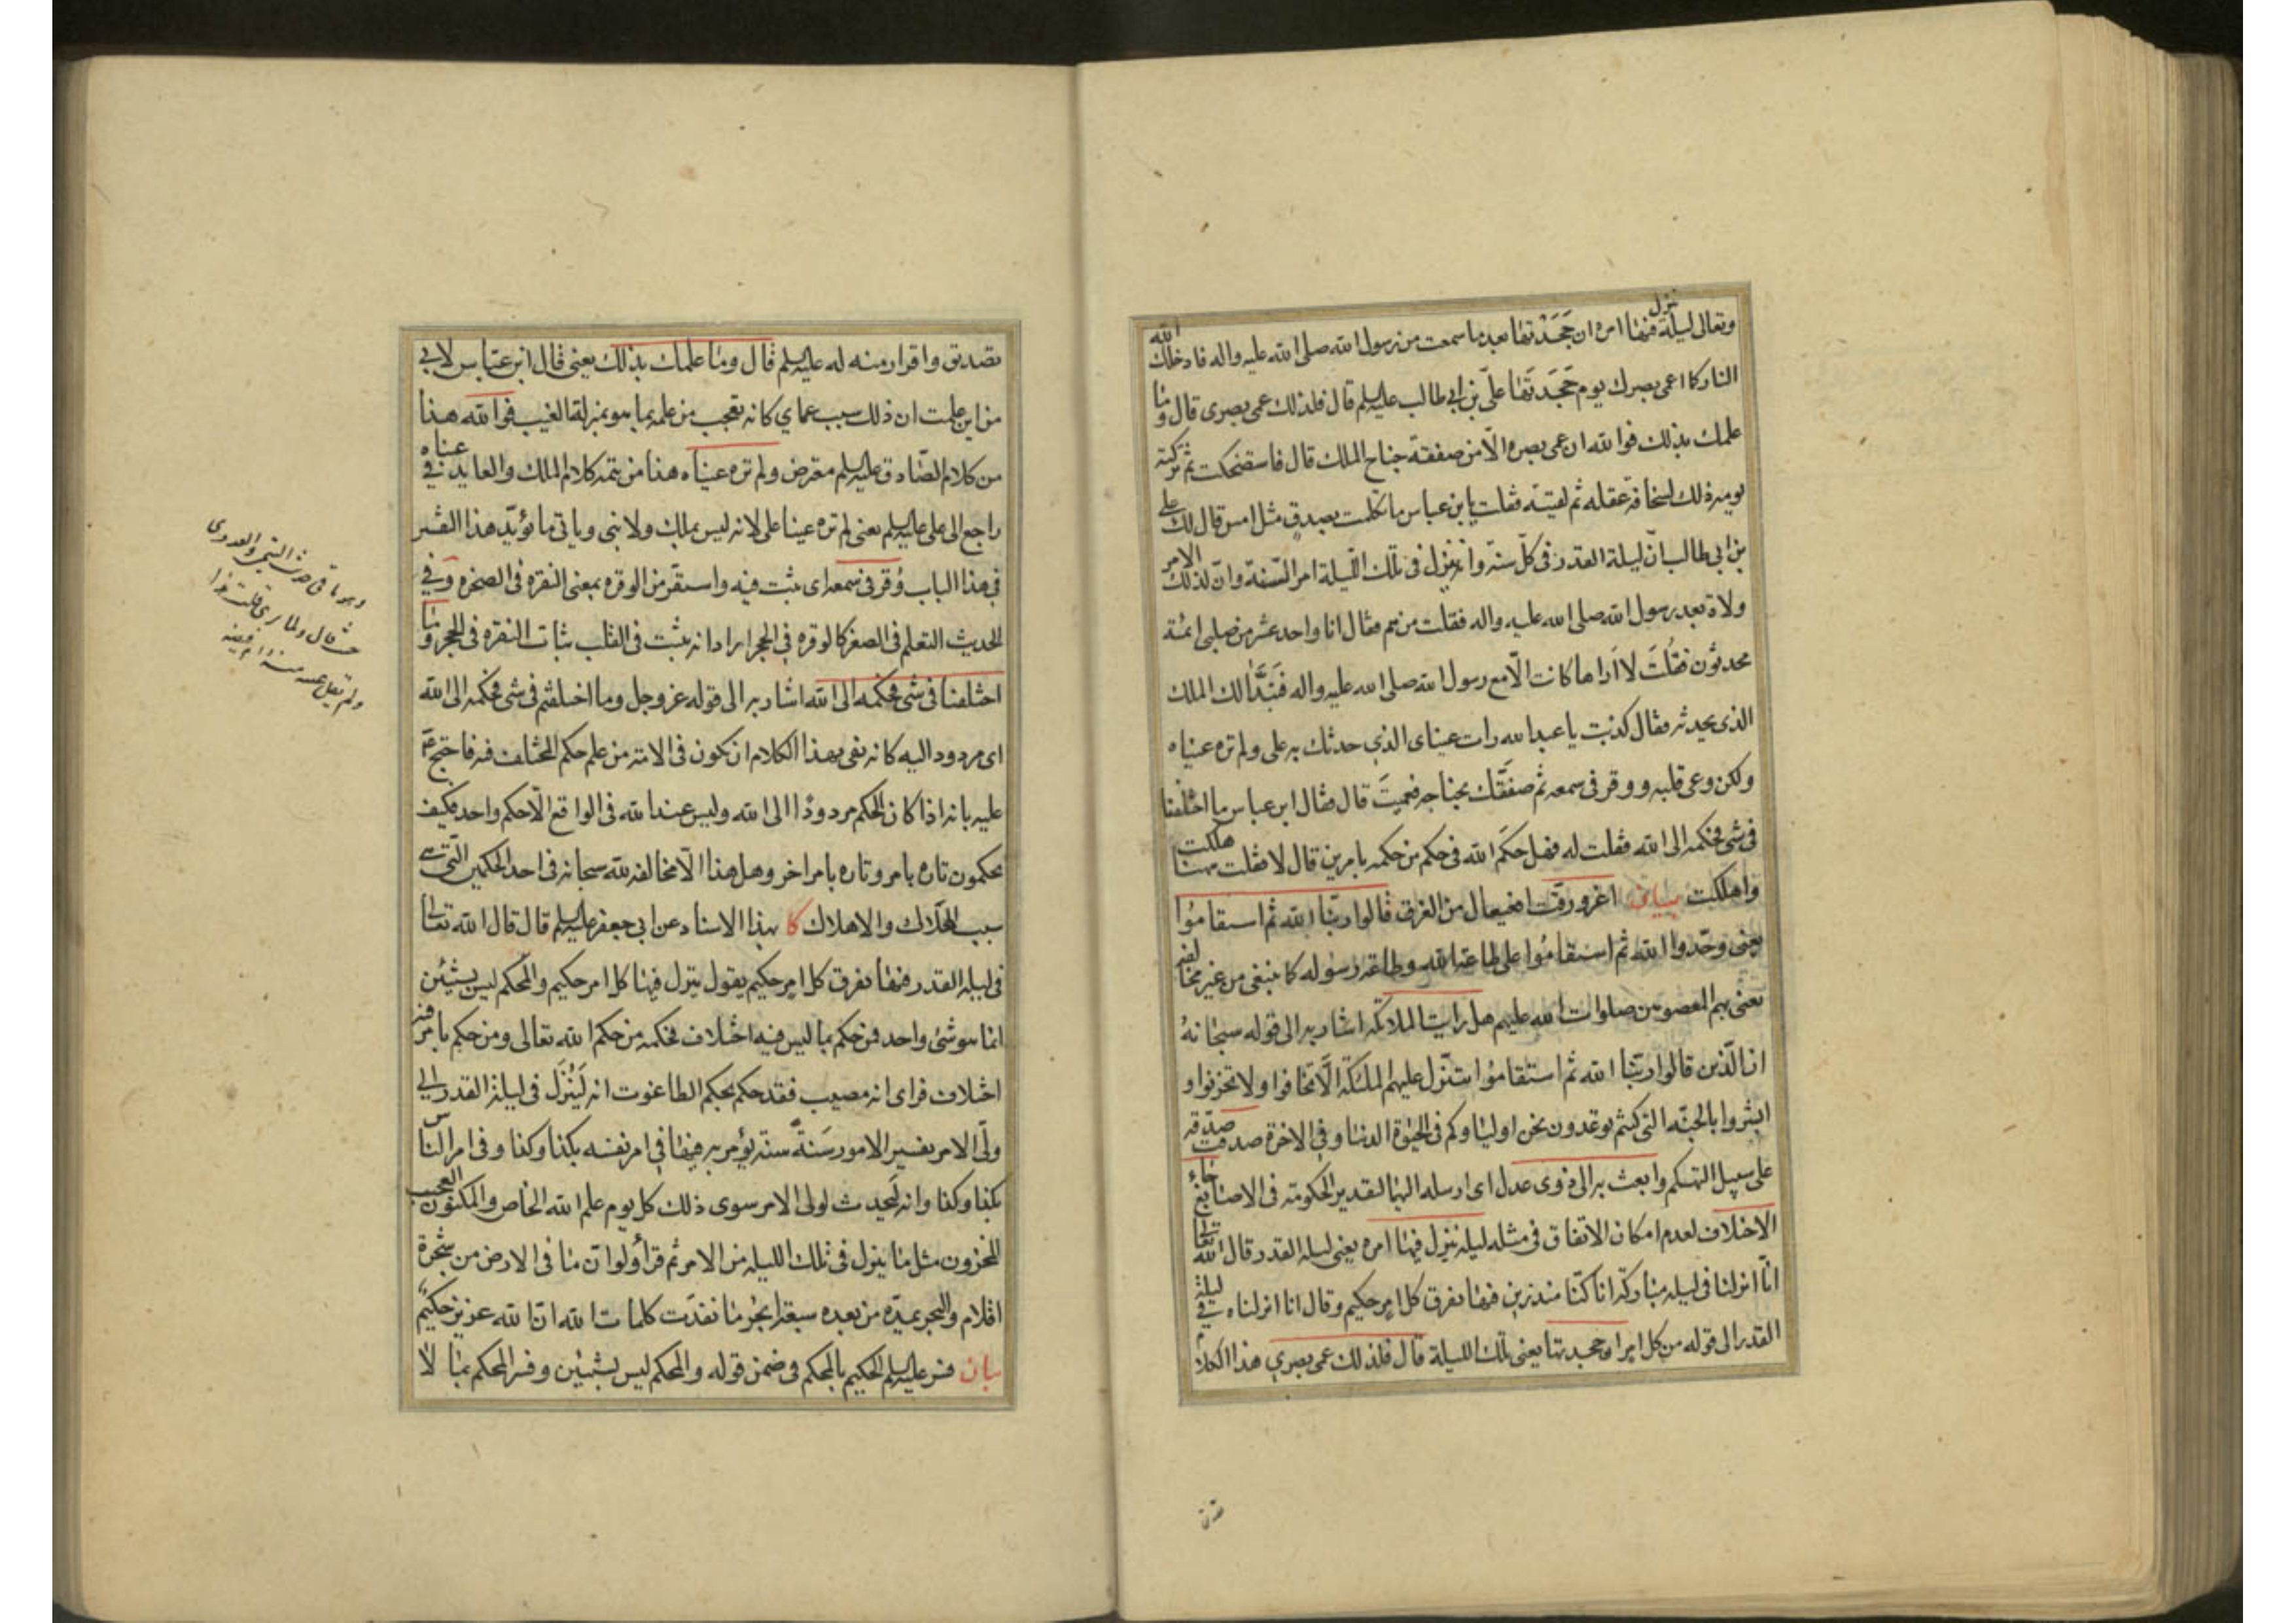 وتعالى ليلة ينزل فيها امره ان جَحَدْتها بعد ما سمعت من رسول الله صلى الله عليه واله فادخلك الله
النار كما اعمى بصرك يوم جَحَدتَها علىّ بن ابي طالب عليه السلم قال فلذلك عمى بصرى قال وما
علمك بذلك فوالله ان عمى بصره الّا من صفقة جناح الملك قال فاستضحكت ثم تركته
يومه ذلك لسخافة عقله ثم لقيته فقلت يابن عباس ما تكلمت بصدقٍ مثل امس قال لك على
بن ابي طالب انّ ليلة القدر فى كلّ سنة وانه ينزل فى تلك اللّيلة امر السّنة وانّ لذلك الامر
ولاة بعد رسول الله صلى الله عليه واله فقلت من هم فقال انا واحد عشر من صلبى ائمة
محدثون فقُلتَ لا اَراها كانت الّا مع رسول الله صلى الله عليه واله فَتَبَدَّا لك الملك
الذى يحدثه فقال كذبت يا عبد الله رات عيناى الذي حدثك به على ولم تره عيناه
ولكن وعى قلبه ووقر فى سمعه ثم صفقَك بجناحه فعميتَ قال فقال ابن عباس ما اختلفنا
فى شى فحكمه الى الله فقلت له فهل حكَم الله فى حكم من حكمه بامرين قال لا فقلت ههنا هلكت
واهلكت بيان اغرورقت افعيعال من الغرق قالوا ربّنا الله ثم استقاموا
يعنى وحّدوا الله ثم استقاموا على طاعة الله وطاعة رسوله كما ينبغى من غير مخالفة
يعنى بهم المعصومين صلوات الله عليهم هل رايت الملائكة اشار به الى قوله سبحانهُ
ان الّذين قالوا ربّنا الله ثم استقاموا تتنزّل عليهم الملئكة الّا تخافوا ولا تحزنوا و
ابشروا بالجنّة التى كنتم توعدون نحن اولياوكم فى الحيوة الدنيا وفى الاخرة صدقت صدّقه
على سبيل التهكم وابعث به الى ذوى عدل اى ارسله اليهما لتقدير الحكومة فى الاصابع جاء
الاختلاف لعدم امكان الاتفاق فى مثله ليلة ينزل فيها امره يعنى ليلة القدر قال الله تعالى
انّا انزلنا فى ليلة مباركة انا كنّا منذرين فيها يفرق كل امرٍ حكيم وقال انا انزلناه فى ليلة
القدر الى قوله من كل امر او جحدتها يعنى تلك الليلة قال فلذلك عمى بصرى هذا الكلام
تصديق واقرار منه له عليه السلم قال وما علمك بذلك يعنى قال ابن عبّاس لابى
من اين علمت ان ذلك سبب عماي كانه تعجب من علمه بما هو بمنزلة الغيب فوالله هذا
من كلام الصّادق عليه السلم معترض ولم تره عيناه هذا من تتمة كلام الملك والعايد فى عيناه
راجع الى على عليه السلم يعنى لم تره عينا على لانه ليس بملك ولا نبى وياتى ما يؤيّد هذا التفسير
فى هذا الباب وُقر فى سمعه اى ثبت فيه واستقرّ من الوقرة بمعنى النقرة فى الصخرة وَفى
الحديث التعلم فى الصغر كالوقرة في الحجر اراد انه يثبت فى القلب ثبات النقرة فى الحجر وما
اختلفنا فى شى فحكمه الى الله اشار به الى قوله عز وجل وما اختلفتم فى شى فحكمه الى الله
اى مردود اليه كانه نفى بهذا الكلام ان يكون فى الامة من علم حكم المختلف فيه فاحتج ع
عليه بانه اذا كان الحكم مردودًا الى الله وليس عند الله فى الواقع الّا حكم واحد فكيف
يحكمون تارة بامر وتارة بامر اخر وهل هذا الّا مخالفة لله سبحانه فى احد الحكمين الّتى هى
سبب الهلاك والاهلاك كا بهذا الاسناد عن ابى جعفر عليه السلم قال قال الله تعالى
فى ليلة القدر فيها يفرق كل امرٍ حكيم يقول ينزل فيها كل امر حكيم والمحكم ليس بشيئين
انما هو شئ واحد فمن حكم بما ليس فيه اختلاف فحكمه من حكم الله تعالى ومن حكم بامر فيه
اختلاف فراى انه مصيب فقد حكم بحكم الطاغوت انه لَيُنزَل فى ليلة القدر الى
ولّى الامر تفسير الامور سَنةً سنة يؤمر به فيها في امر نفسه بكذا وكذا وفى امر الناس
بكذا وكذا وانه لَيحدث لولى الامر سوى ذلك كل يوم علم الله الخاص والمكنون العجيب
المخزون مثل ما ينزل فى تلك الليلة من الامر ثم قرأ ولوانّ ما فى الارض من شجرة
اقلام والبحر يمدّه من بعده سبعة ابحُر ما نفدَت كلمات الله انّ الله عزيز حكيمٌ
بيان فسر عليه السلم الحكيم بالمحكم فى ضمن قوله والمحكم ليس بشيئين وفسر المحكم بما لا